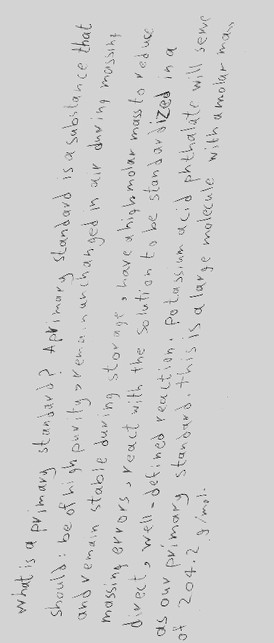 What is a primary standard? A primary standard is a substance that
should: be of high purity, remain unchanged in air during massing
and remain stable during storage, have a high molar mass to reduce
massing errors, react with the solution to be standardized in a
direct, well-defined reaction. Potassium acid phthalate will serve
as our primary standard. this is a large molecule with a molar ma
of 204.2 g/mol.